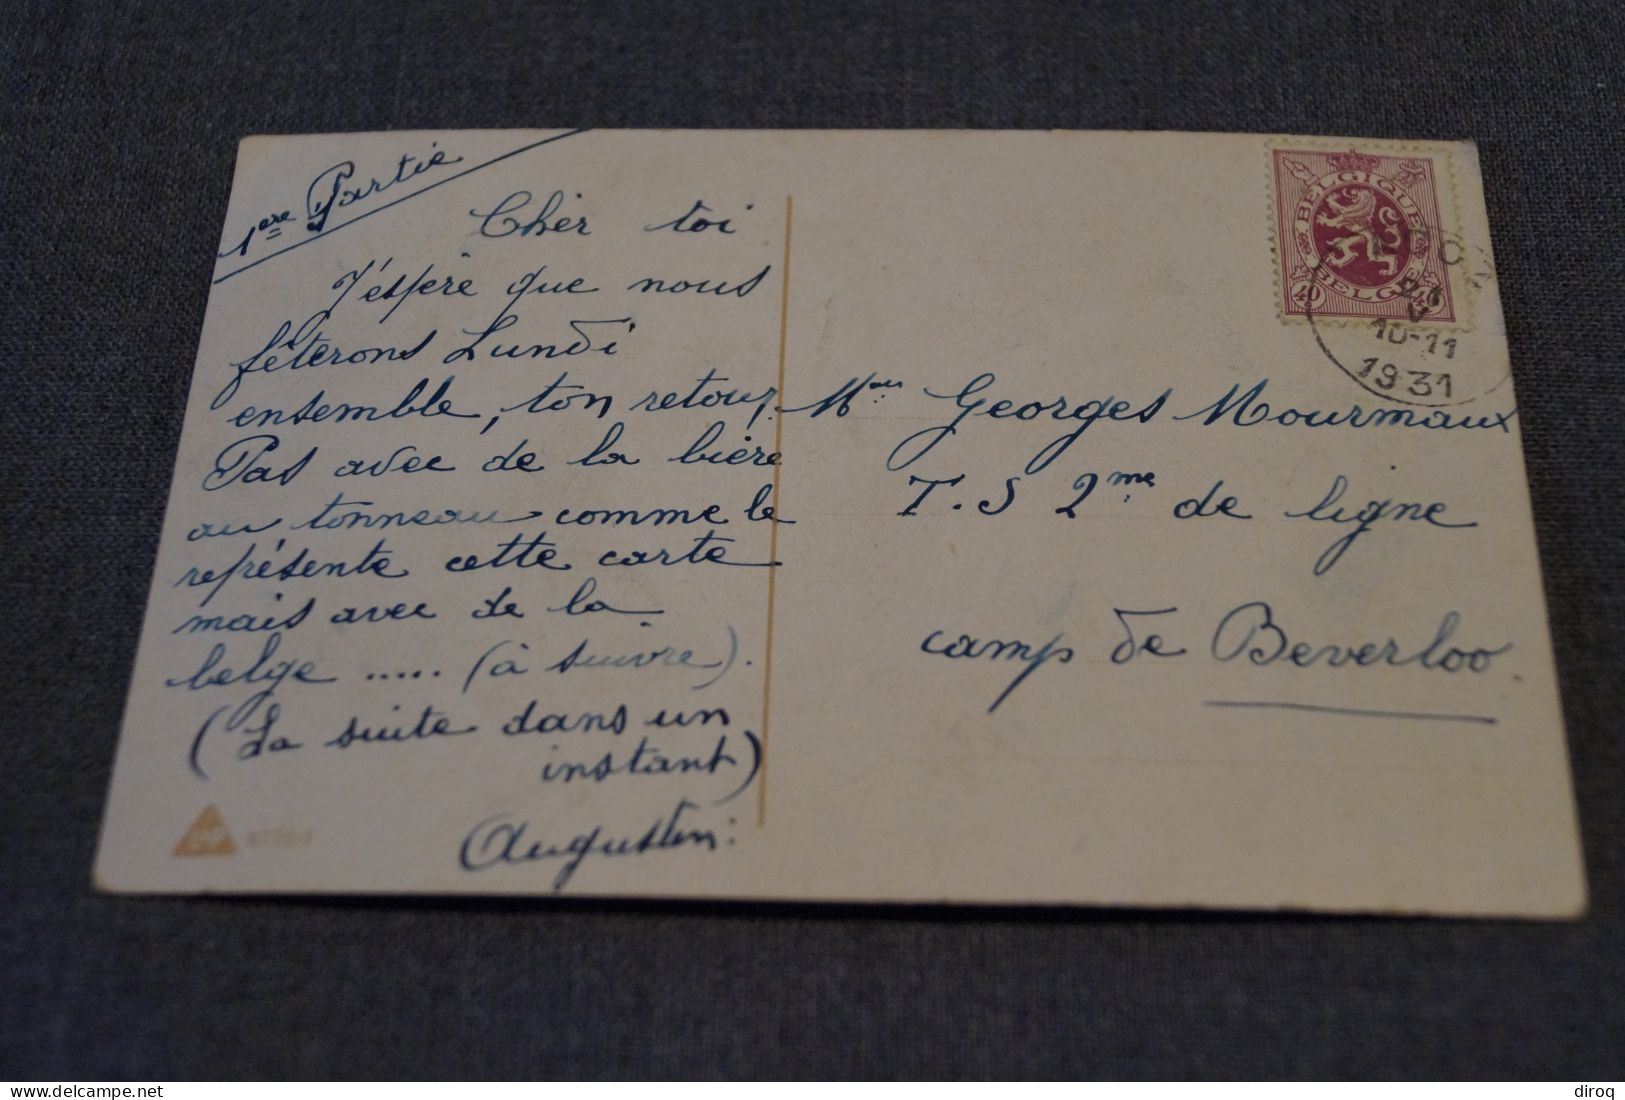 1ere Partie
Cher toi
J'espère que nous
fêterons Lundi
ensemble, ton retour.
Pas avec de la bière
au tonneau comme le
représente cette carte
mais avec de la
belge ..... (à suivre).
(La suite dans un
instant)
Augustin.
BELGIQUE
BELGIE
40 40
10-11
1931
Georges Mourmaux
T.S 2me de ligne
camp de Beverloo.
diroq